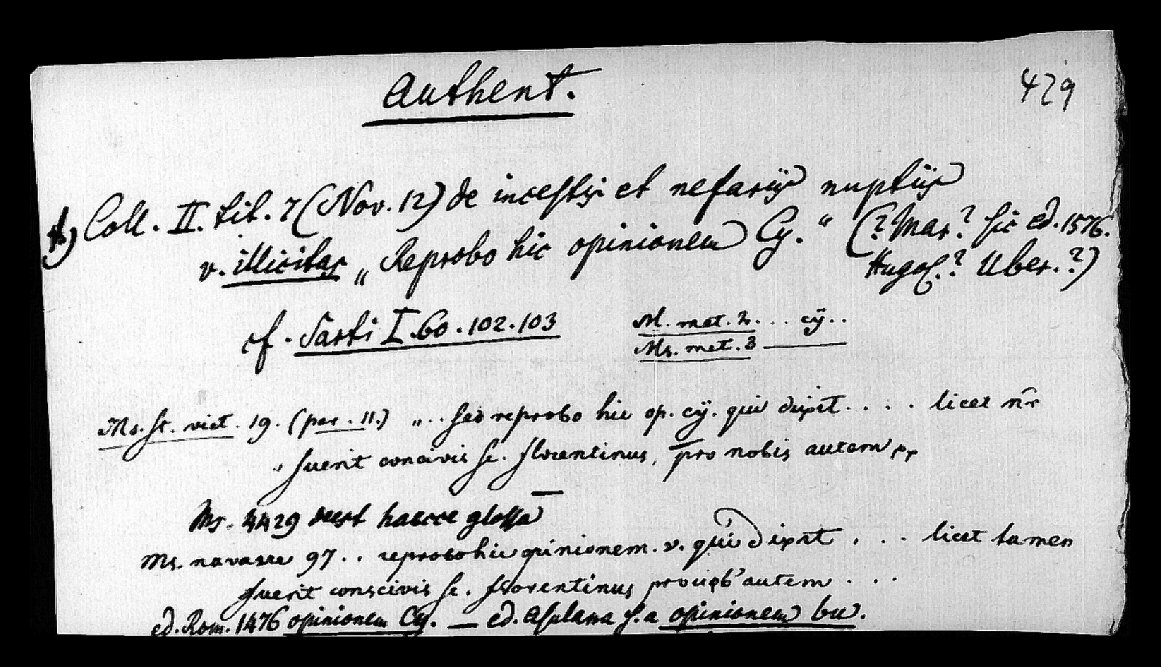 Authent.
429
Coll. II. tit. 7 (Nov. 12) de incestis et nefariis nuptiis
v. illicitas „ Reprobo hic opinionem Cy. “ (? Mar? sic ed. 1576.
Hugol.? Uber.?)
cf. Sarti I. 60. 102. 103
M. met. 2. . . . cÿ. .
Ms. met. 3
Ms. St. vict. 19. (par. 11.) „ . . sed reprobo hic op. cÿ. qui dixit . . . . licet nr
fuerit concivis sc. florentinus, pro nobis autem
Ms. 4429 deest haecce glossa
Ms. navarre 97 . . reprobo hic opinionem. v. qui dixit . . . licet tamen
fuerit conscivis sc. florentinus autem . . .
ed. Rom. 1476 opinionem Cy. — ed. Asulana s. a opinionem bu.